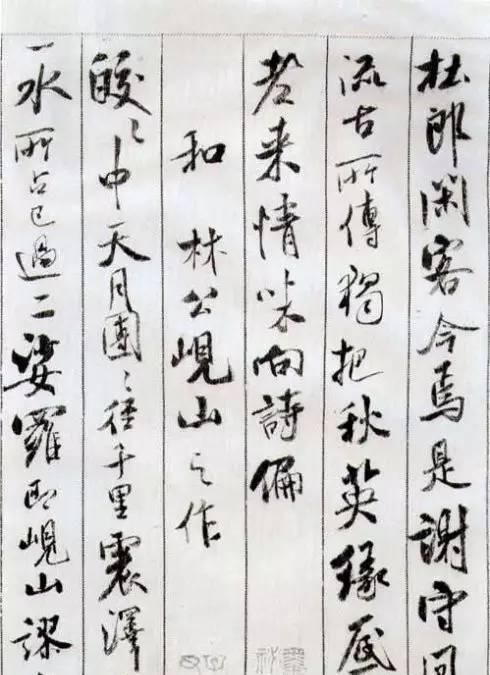 杜郎閑客今焉是謝守
流古所傳獨把秋英緣底
老来情味向詩偏
和林公峴山之作
皎々中天月團々徑千里震澤
一水所占已過二娑羅即峴山謬